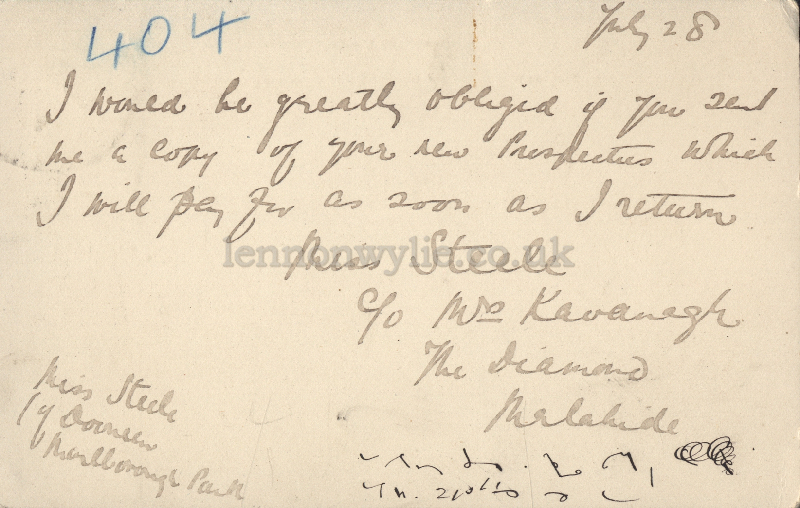 404
July 28
I would be greatly obliged if you sent
me a copy of your new Prospectus which
I will pay for as soon as I return
lennonwylie.co.uk
Miss Steele
c/o Mrs Kavanagh
The Diamond
Malahide
Miss Steele
Marlborough Park